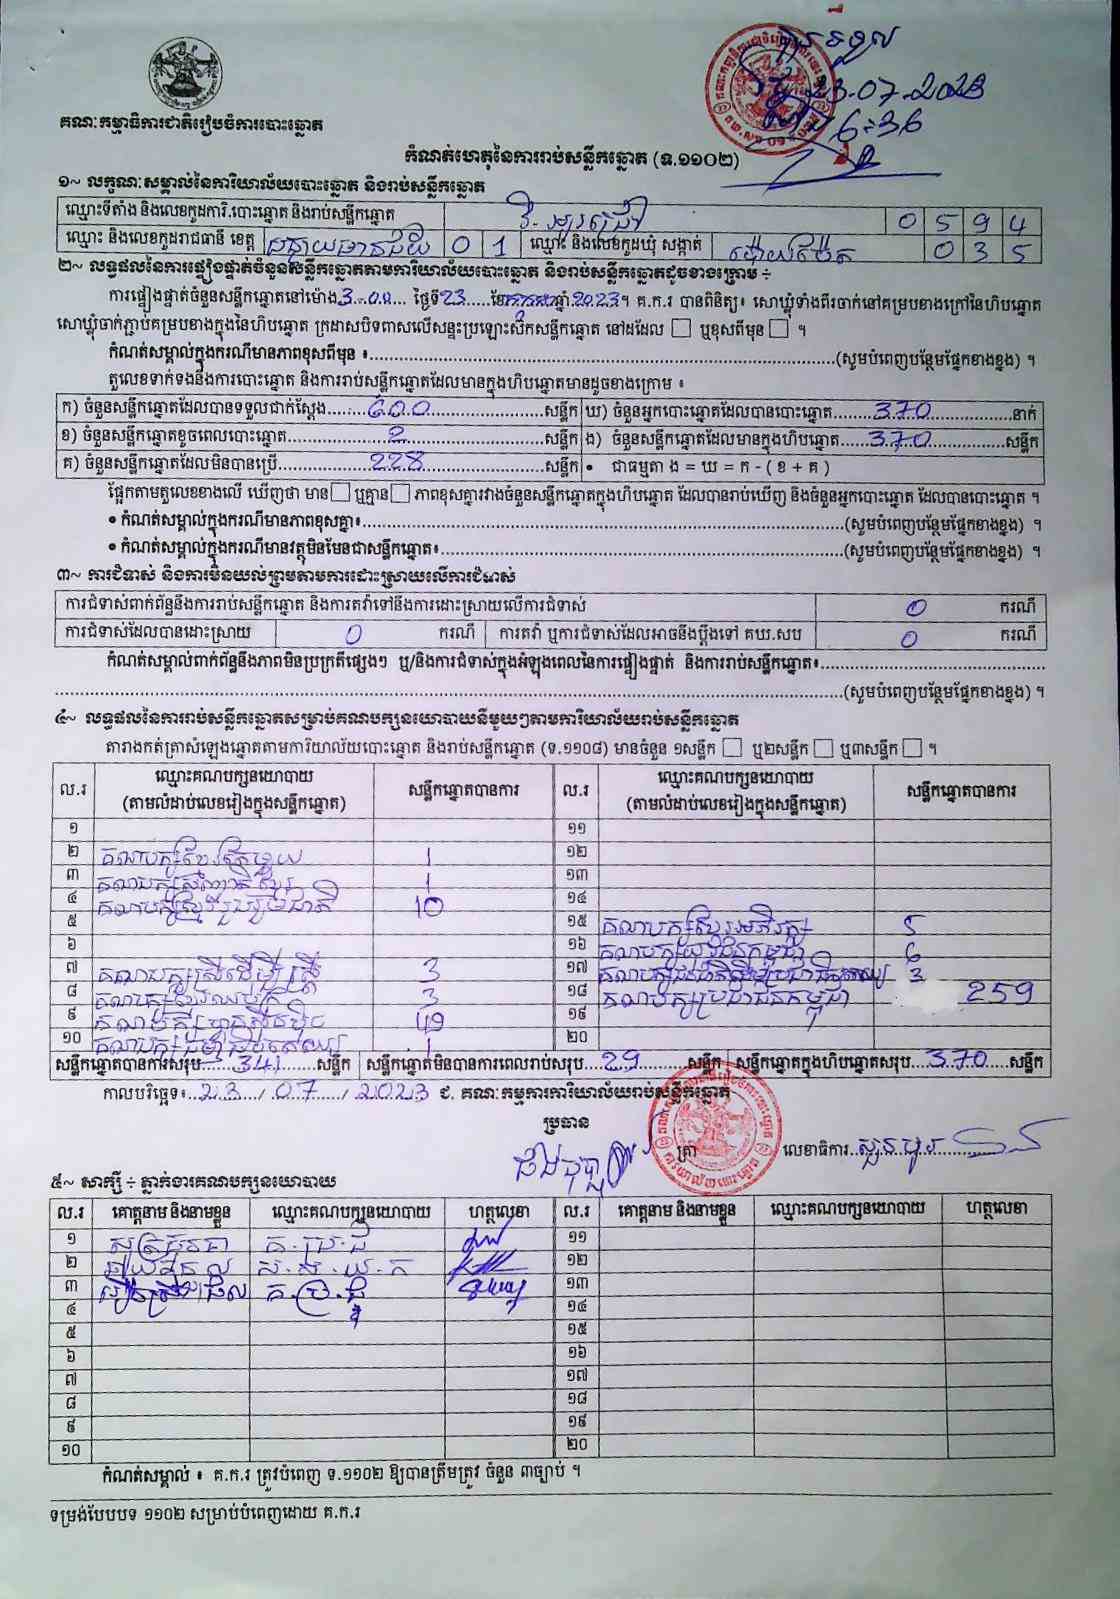 គណៈកម្មាធិការជាតិរៀបចំការបោះឆ្នោត
23-07-2023
6:36
កំណត់ហេតុនៃការរាប់សន្លឹកឆ្នោត (ទ.១១០២)
១~ លក្ខណៈសម្គាល់នៃការិយាល័យបោះឆ្នោត និងរាប់សន្លឹកឆ្នោត
ឈ្មោះទីតាំង និងលេខកូដការិ.បោះឆ្នោត និងរាប់សន្លឹកឆ្នោត 0 5 9 4
ឈ្មោះ និងលេខកូដរាជធានី ខេត្ត បន្ទាយមានជ័យ 0 1 ឈ្មោះ និងលេខកូដឃុំ សង្កាត់ ប៉ោយប៉ែត 0 3 5
២~ លទ្ធផលនៃការផ្ទៀងផ្ទាត់ចំនួនសន្លឹកឆ្នោតតាមការិយាល័យបោះឆ្នោត និងរាប់សន្លឹកឆ្នោតដូចខាងក្រោម ÷
ការផ្ទៀងផ្ទាត់ចំនួនសន្លឹកឆ្នោតនៅម៉ោង 3-00 ថ្ងៃទី 23 ខែ កក្កដា ឆ្នាំ 2023 ។ គ.ក.រ បានពិនិត្យ៖ សោឃ្លុំទាំងពីរចាក់នៅគម្របខាងក្រៅនៃហិបឆ្នោត
សោឃ្លុំចាក់ភ្ជាប់គម្របខាងក្នុងនៃហិបឆ្នោត ក្រដាសបិទពាសលើសន្ទះប្រឡោះស៊កសន្លឹកឆ្នោត នៅដដែល □ ឬខុសពីមុន □ ។
កំណត់សម្គាល់ក្នុងករណីមានភាពខុសពីមុន ៖ (សូមបំពេញបន្ថែមផ្នែកខាងខ្នង) ។
តួលេខទាក់ទងនឹងការបោះឆ្នោត និងការរាប់សន្លឹកឆ្នោតដែលមានក្នុងហិបឆ្នោតមានដូចខាងក្រោម ៖
ក) ចំនួនសន្លឹកឆ្នោតដែលបានទទួលជាក់ស្តែង 600 សន្លឹក ឃ) ចំនួនអ្នកបោះឆ្នោតដែលបានបោះឆ្នោត 370 នាក់
ខ) ចំនួនសន្លឹកឆ្នោតខូចពេលបោះឆ្នោត 2 សន្លឹក ង) ចំនួនសន្លឹកឆ្នោតដែលមានក្នុងហិបឆ្នោត 370 សន្លឹក
គ) ចំនួនសន្លឹកឆ្នោតដែលមិនបានប្រើ 228 សន្លឹក • ជាធម្មតា ង = ឃ = ក - ( ខ + គ )
ផ្អែកតាមតួលេខខាងលើ ឃើញថា មាន □ ឬគ្មាន □ ភាពខុសគ្នារវាងចំនួនសន្លឹកឆ្នោតក្នុងហិបឆ្នោត ដែលបានរាប់ឃើញ និងចំនួនអ្នកបោះឆ្នោត ដែលបានបោះឆ្នោត ។
• កំណត់សម្គាល់ក្នុងករណីមានភាពខុសគ្នា៖ (សូមបំពេញបន្ថែមផ្នែកខាងខ្នង) ។
• កំណត់សម្គាល់ក្នុងករណីមានវត្ថុមិនមែនជាសន្លឹកឆ្នោត៖ (សូមបំពេញបន្ថែមផ្នែកខាងខ្នង) ។
៣~ ការជំទាស់ និងការមិនយល់ព្រមតាមការដោះស្រាយលើការជំទាស់
ការជំទាស់ពាក់ព័ន្ធនឹងការរាប់សន្លឹកឆ្នោត និងការតវ៉ាទៅនឹងការដោះស្រាយលើការជំទាស់ 0 ករណី
ការជំទាស់ដែលបានដោះស្រាយ 0 ករណី ការតវ៉ា ឬការជំទាស់ដែលអាចនឹងប្តឹងទៅ គឃ.សប 0 ករណី
កំណត់សម្គាល់ពាក់ព័ន្ធនឹងភាពមិនប្រក្រតីផ្សេងៗ ឬ/និងការជំទាស់ក្នុងអំឡុងពេលនៃការផ្ទៀងផ្ទាត់ និងការរាប់សន្លឹកឆ្នោត៖
(សូមបំពេញបន្ថែមផ្នែកខាងខ្នង) ។
៤~ លទ្ធផលនៃការរាប់សន្លឹកឆ្នោតសម្រាប់គណបក្សនយោបាយនីមួយៗតាមការិយាល័យរាប់សន្លឹកឆ្នោត
តារាងកត់ត្រាសំឡេងឆ្នោតតាមការិយាល័យបោះឆ្នោត និងរាប់សន្លឹកឆ្នោត (ទ.១១០៨) មានចំនួន ១សន្លឹក □ ឬ២សន្លឹក □ ឬ៣សន្លឹក □ ។
ល.រ ឈ្មោះគណបក្សនយោបាយ (តាមលំដាប់លេខរៀងក្នុងសន្លឹកឆ្នោត) សន្លឹកឆ្នោតបានការ ល.រ ឈ្មោះគណបក្សនយោបាយ (តាមលំដាប់លេខរៀងក្នុងសន្លឹកឆ្នោត) សន្លឹកឆ្នោតបានការ
១ ១១
២ គណបក្សខ្មែរតែមួយ 1 ១២
៣ គណបក្ស 1 ១៣
៤ គណបក្សខ្មែររួបរួមជាតិ 10 ១៤
៥ ១៥ គណបក្សខ្មែរអភិរក្ស 5
៦ ១៦ គណបក្សយុវជនកម្ពុជា 6
៧ គណបក្សស្រីដើម្បីស្ត្រី 3 ១៧ 3
៨ គណបក្ស 3 ១៨ គណបក្សប្រជាជនកម្ពុជា 259
៩ គណបក្សហ្វ៊ុនស៊ិនប៉ិច 49 ១៩
១០ គណបក្ស 1 ២០
សន្លឹកឆ្នោតបានការសរុប 341 សន្លឹក សន្លឹកឆ្នោតមិនបានការពេលរាប់សរុប 29 សន្លឹក សន្លឹកឆ្នោតក្នុងហិបឆ្នោតសរុប 370 សន្លឹក
កាលបរិច្ឆេទ៖ 23 / 07 / 2023 ជ. គណៈកម្មការការិយាល័យរាប់សន្លឹកឆ្នោត
ប្រធាន
ត្រា លេខាធិការ
៥~ សាក្សី ÷ ភ្នាក់ងារគណបក្សនយោបាយ
ល.រ គោត្តនាម និងនាមខ្លួន ឈ្មោះគណបក្សនយោបាយ ហត្ថលេខា ល.រ គោត្តនាម និងនាមខ្លួន ឈ្មោះគណបក្សនយោបាយ ហត្ថលេខា
១ ១១
២ ១២
៣ ១៣
៤ ១៤
៥ ១៥
៦ ១៦
៧ ១៧
៨ ១៨
៩ ១៩
១០ ២០
កំណត់សម្គាល់ ៖ គ.ក.រ ត្រូវបំពេញ ទ.១១០២ ឱ្យបានត្រឹមត្រូវ ចំនួន ៣ច្បាប់ ។
ទម្រង់បែបបទ ១១០២ សម្រាប់បំពេញដោយ គ.ក.រ